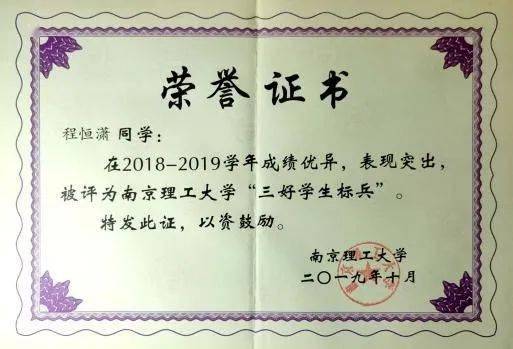 荣誉证书
程恒潇 同学：
在2018-2019学年成绩优异，表现突出，
被评为南京理工大学“三好学生标兵”。
特发此证，以资鼓励。
南京理工大学
二〇一九年十月